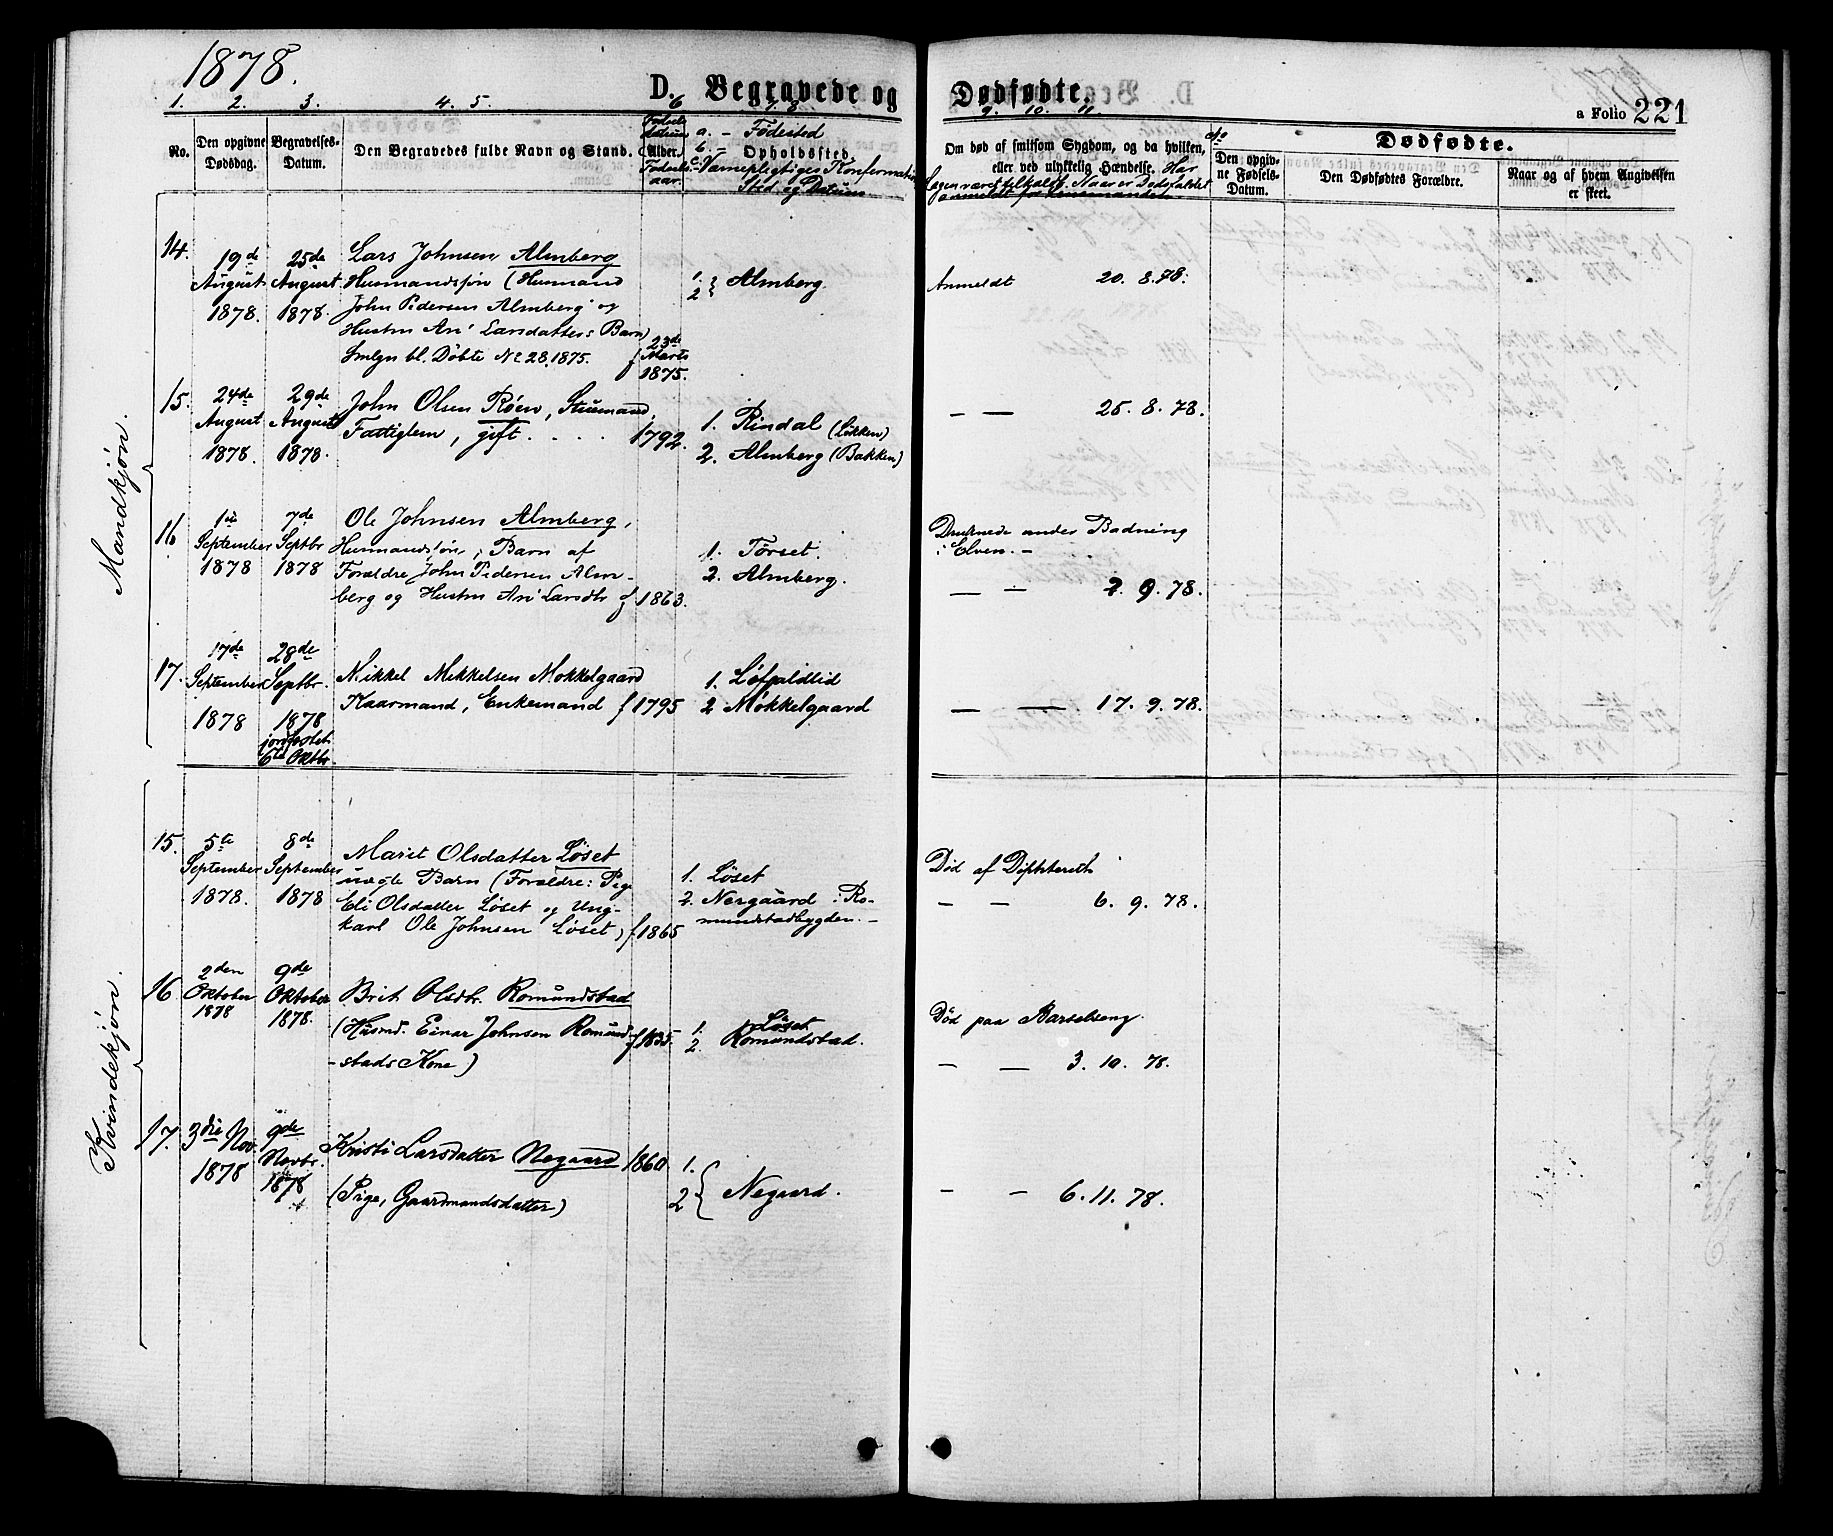 1878.
D. Begravede og Dødfødte.
a Folio 221
1. 2. 3. 4. 5. 6 7. 8. 9. 10. 11.
No.
Den opgivne Dødsdag.
Begravelses-Datum.
Den Begravedes fulde Navn og Stand.
Alder.
a. - Fødested
b. - Opholdssted.
c. Værnepligtiges Konfirmations
Sted og Datum
Om død af smitsom Sygdom, og da hvilken,
eller ved ulykkelig Hændelse. Har
Lægen været tilkaldt. Naar er Dødsfaldet
anmeldt for Lensmanden.
No
Dødfødte.
Den opgiv-
ne Fødsels-
Datum.
Den Dødfødtes Forældre.
Naar og af hvem Angivelsen
er skeet.
Mandkjøn.
14.
19de
August
1878.
25de
August
1878.
Lars Johnsen Almberg
Husmandssøn (Husmand
John Pedersen Almberg og
Hustru Ari Larsdatters Barn)
Smlgn bl. Døbte No 28. 1875.
f 23de
Marts
1875.
1.
2 } Almberg.
Anmeldt 20. 8. 78.
15.
24de
August
1878.
29de
August
1878.
John Olsen Røen, Stuemand,
Fattiglem, gift. . . . .
1792.
1. Rindal (Løkken)
2. Almberg (Bakken)
— — 25. 8. 78.
16
1ste
September
1878
7de
Septbr
1878
Ole Johnsen Almberg,
Husmandssøn, Barn af
Forældre John Pedersen Alm-
berg og Hustru Ari Larsdtr
f 1863.
1. Tørset.
2. Almberg.
Druknede under Badning
i Elven. —
— — 2. 9. 78.
17.
17de
September
1878
28de
Septbr.
1878
jordfæstet
6te Oktbr.
Mikkel Mikkelsen Mokkelgaard
Kaarmand, Enkemand
f 1795
1. Løfaldlid
2 Møkkelgaard
— — 17. 9. 78.
Kvindekjøn.
15.
5te
September
1878.
8de
September
1878
Marit Olsdatter Løset
uægte Barn (Forældre: Pige
Eli Olsdatter Løset og Ung-
karl Ole Johnsen Løset)
f 1865
1. Løset
2. Nergaard i Ro-
mundstadbygden. —
Død af Difhterit
— — 6. 9. 78.
16
2den
Oktober
1878
9de
Oktober
1878.
Brit Olsdtr. Romundstad
(Husmd. Einar Johnsen Romund-
-stads Kone)
f 1835.
1. Løset
2. Romundstad.
Død paa Barselseng.
— — 3. 10. 78.
17.
3die Nov.
1878
9de
Novbr.
1878
Kristi Larsdatter Negaard
(Pige, Gaardmandsdatter)
1860
1.
2 { Negaard.
— — 6. 11. 78.